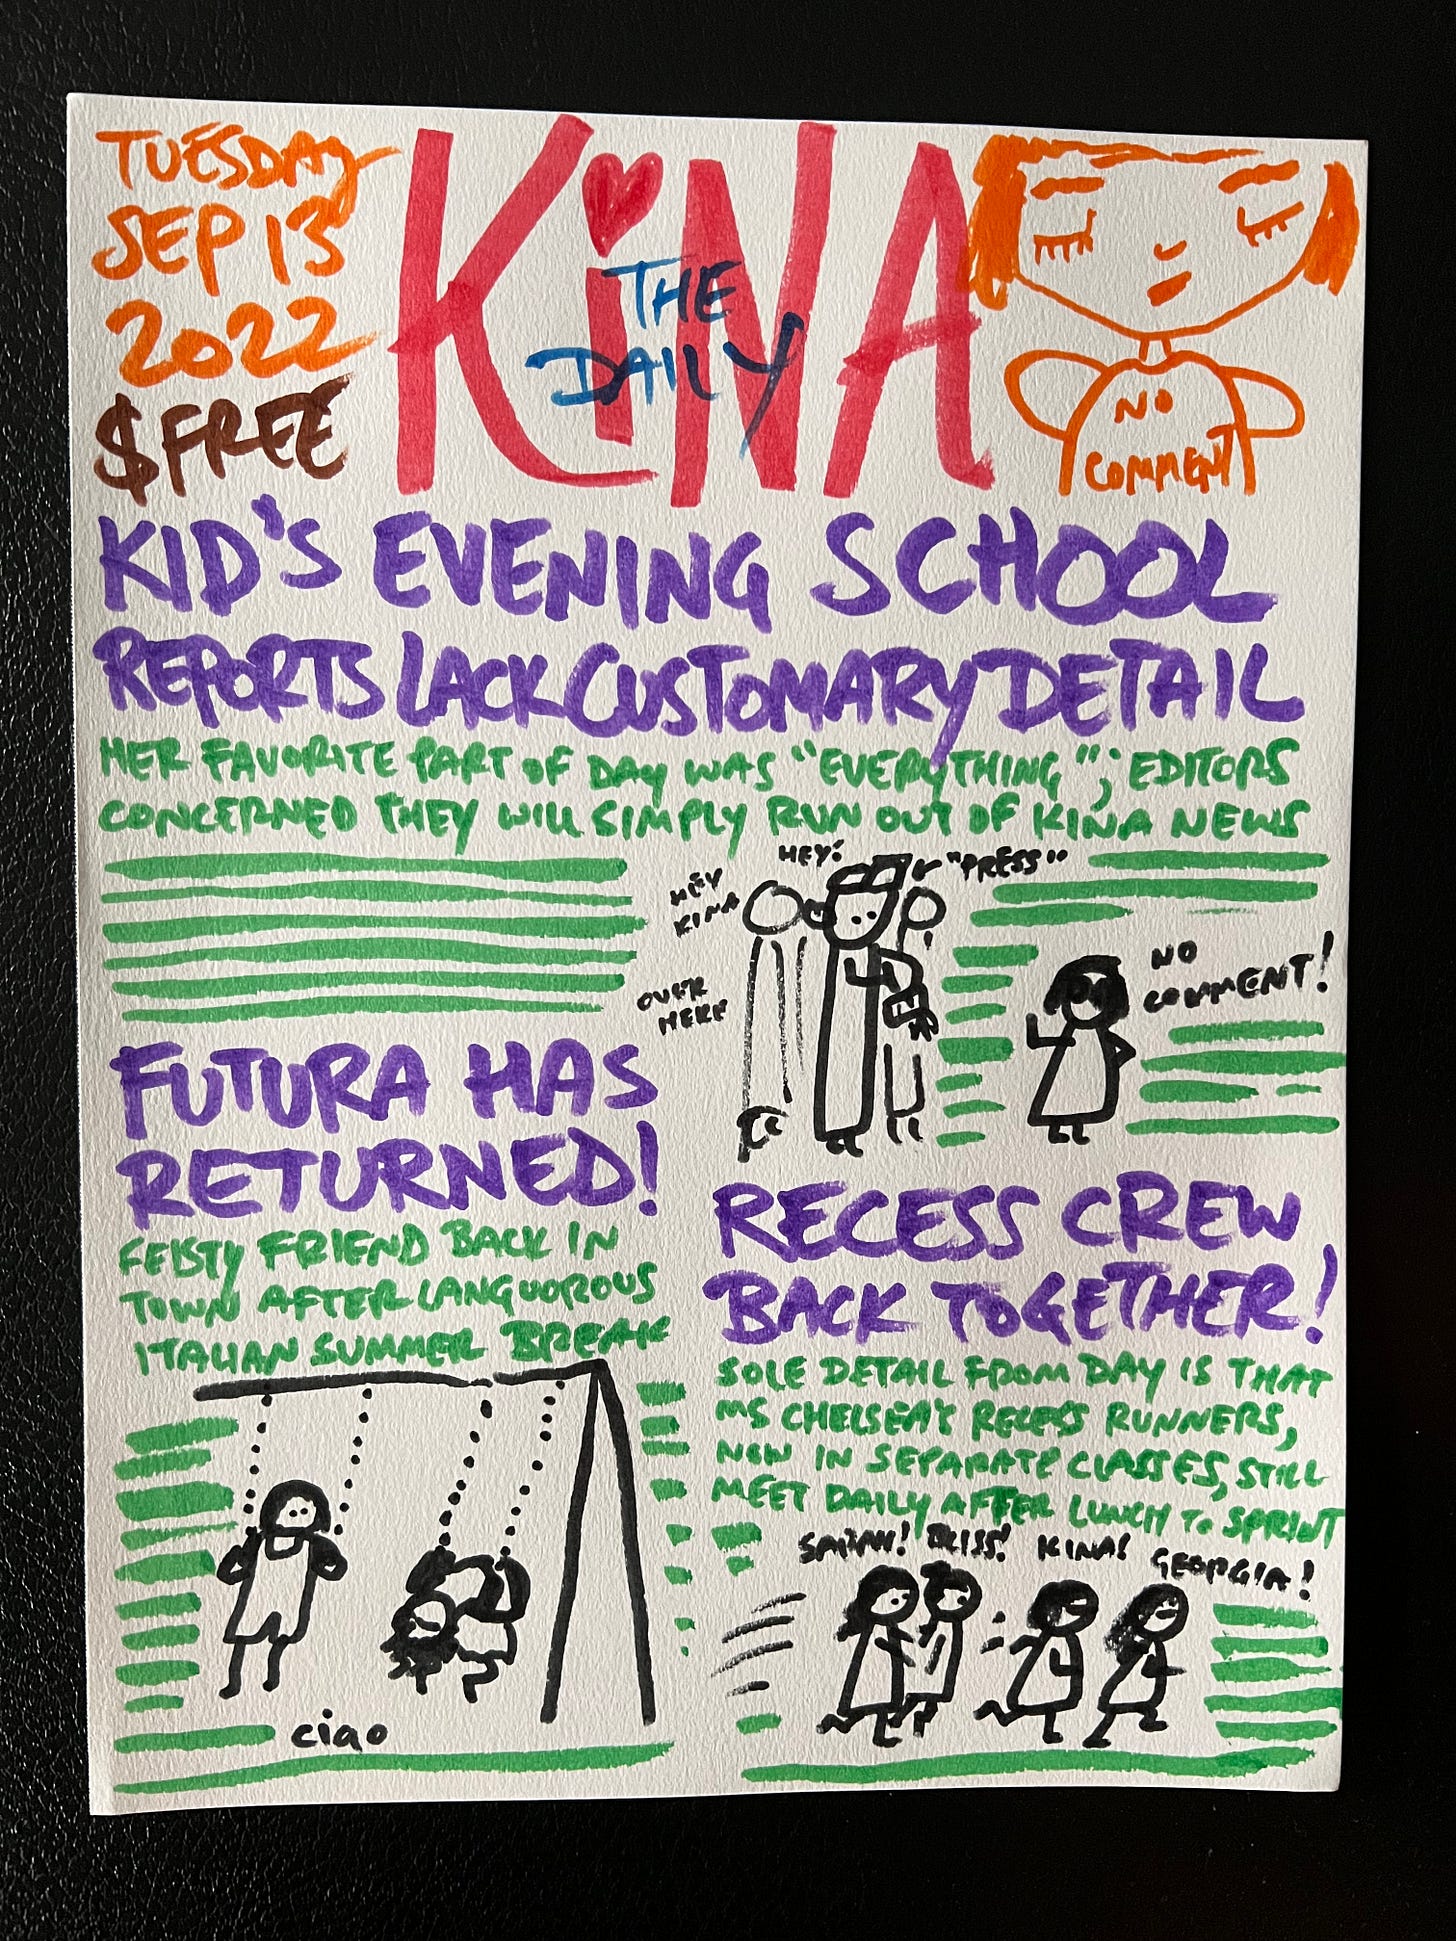 TUESDAY
SEP 13
2022
$FREE
THE
DAILY
KiNA
NO
COMMENT
KID'S EVENING SCHOOL
REPORTS LACK CUSTOMARY DETAIL
HER FAVORITE PART OF DAY WAS "EVERYTHING"; EDITORS
CONCERNED THEY WILL SIMPLY RUN OUT OF KINA NEWS
HEY!
"PRESS"
HEY
KINA
OVER
HERE
NO
COMMENT!
FUTURA HAS
RETURNED!
FEISTY FRIEND BACK IN
TOWN AFTER LANGUOROUS
ITALIAN SUMMER BREAK
ciao
RECESS CREW
BACK TOGETHER!
SOLE DETAIL FROM DAY IS THAT
MS CHELSEA'S RECESS RUNNERS,
NOW IN SEPARATE CLASSES, STILL
MEET DAILY AFTER LUNCH TO SPRINT
BLISS! KINA! GEORGIA!